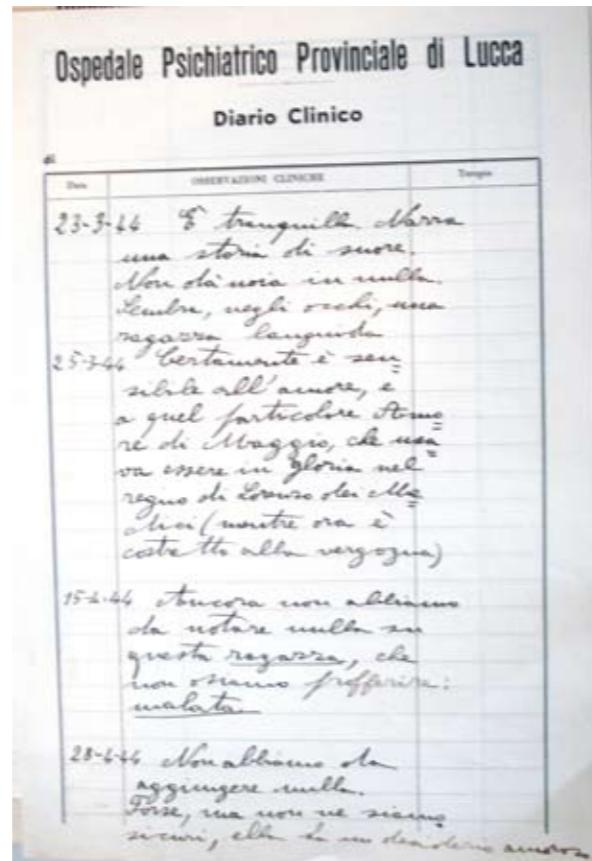 Ospedale Psichiatrico Provinciale di Lucca
Diario Clinico
di
Data OSSERVAZIONI CLINICHE Terapia
23-3-44 È tranquilla. Narra
una storia di suore.
Non dà noia in nulla.
Sembra, negli occhi, una
ragazza languida
25-3-44 Certamente è sen=
sibile all'amore, e
a quel particolare Amo=
re di Maggio, che usa=
va essere in gloria nel
regno di Lorenzo dei Me=
dici (mentre ora è
costretto alla vergogna)
15-4-44 Ancora non abbiamo
da notare nulla su
questa ragazza, che
non osiamo profferire:
malata
28-4-44 Non abbiamo da
aggiungere nulla.
Forse, ma non ne siamo
sicuri, ella ha un desiderio amoroso